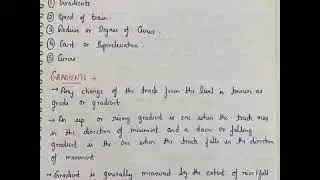 ① Gradients
② Speed of train
③ Radius or Degree of Curve.
④ Cant or Superelevation
⑤ Curves
GRADIENTS →
→ Any change of the track from the level is known as
grade or gradient
→ An up or rising gradient is one when the track rises
in the direction of movement and a down or falling
gradient is the one when the track falls in the direction
of movement
→ Gradient is generally measured by the extent of rise/fall